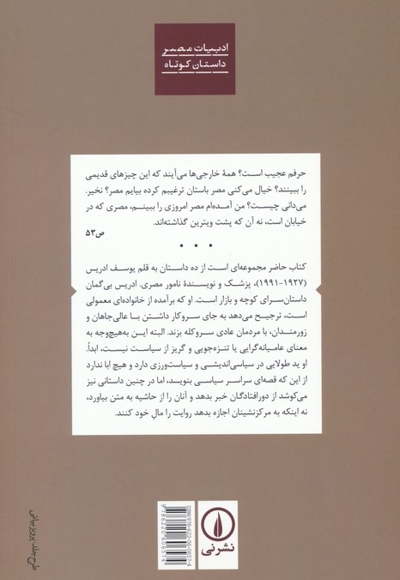 ادبیات مصر
داستان کوتاه
حرفم عجیب است؟ همهٔ خارجی‌ها می‌آیند که این چیزهای قدیمی
را ببینند؟ خیال می‌کنی مصر باستان ترغیبم کرده بیایم مصر؟ نخیر.
می‌دانی چیست؟ من آمده‌ام مصر امروزی را ببینم، مصری که در
خیابان است، نه آن که پشت ویترین گذاشته‌اند.
ص۵۳
• • •
کتاب حاضر مجموعه‌ای است از ده داستان به قلم یوسف ادریس
(۱۹۲۷-۱۹۹۱)، پزشک و نویسندهٔ نامور مصری. ادریس بی‌گمان
داستان‌سرای کوچه و بازار است. او که برآمده از خانواده‌ای معمولی
است، ترجیح می‌دهد به جای سروکار داشتن با عالی‌جاهان و
زورمندان، با مردمان عادی سروکله بزند. البته این به‌هیچ‌وجه به
معنای عامیانه‌گرایی یا تنزه‌جویی و گریز از سیاست نیست، ابداً.
او ید طولایی در سیاسی‌اندیشی و سیاست‌ورزی دارد و هیچ ابا ندارد
از این که قصه‌ای سراسر سیاسی بنویسد، اما در چنین داستانی نیز
می‌کوشد از دورافتادگان خبر بدهد و آنان را از حاشیه به متن بیاورد،
نه اینکه به مرکزنشینان اجازه بدهد روایت را مالِ خود کنند.
نشرنی
طرح جلد: پرویز بیانی